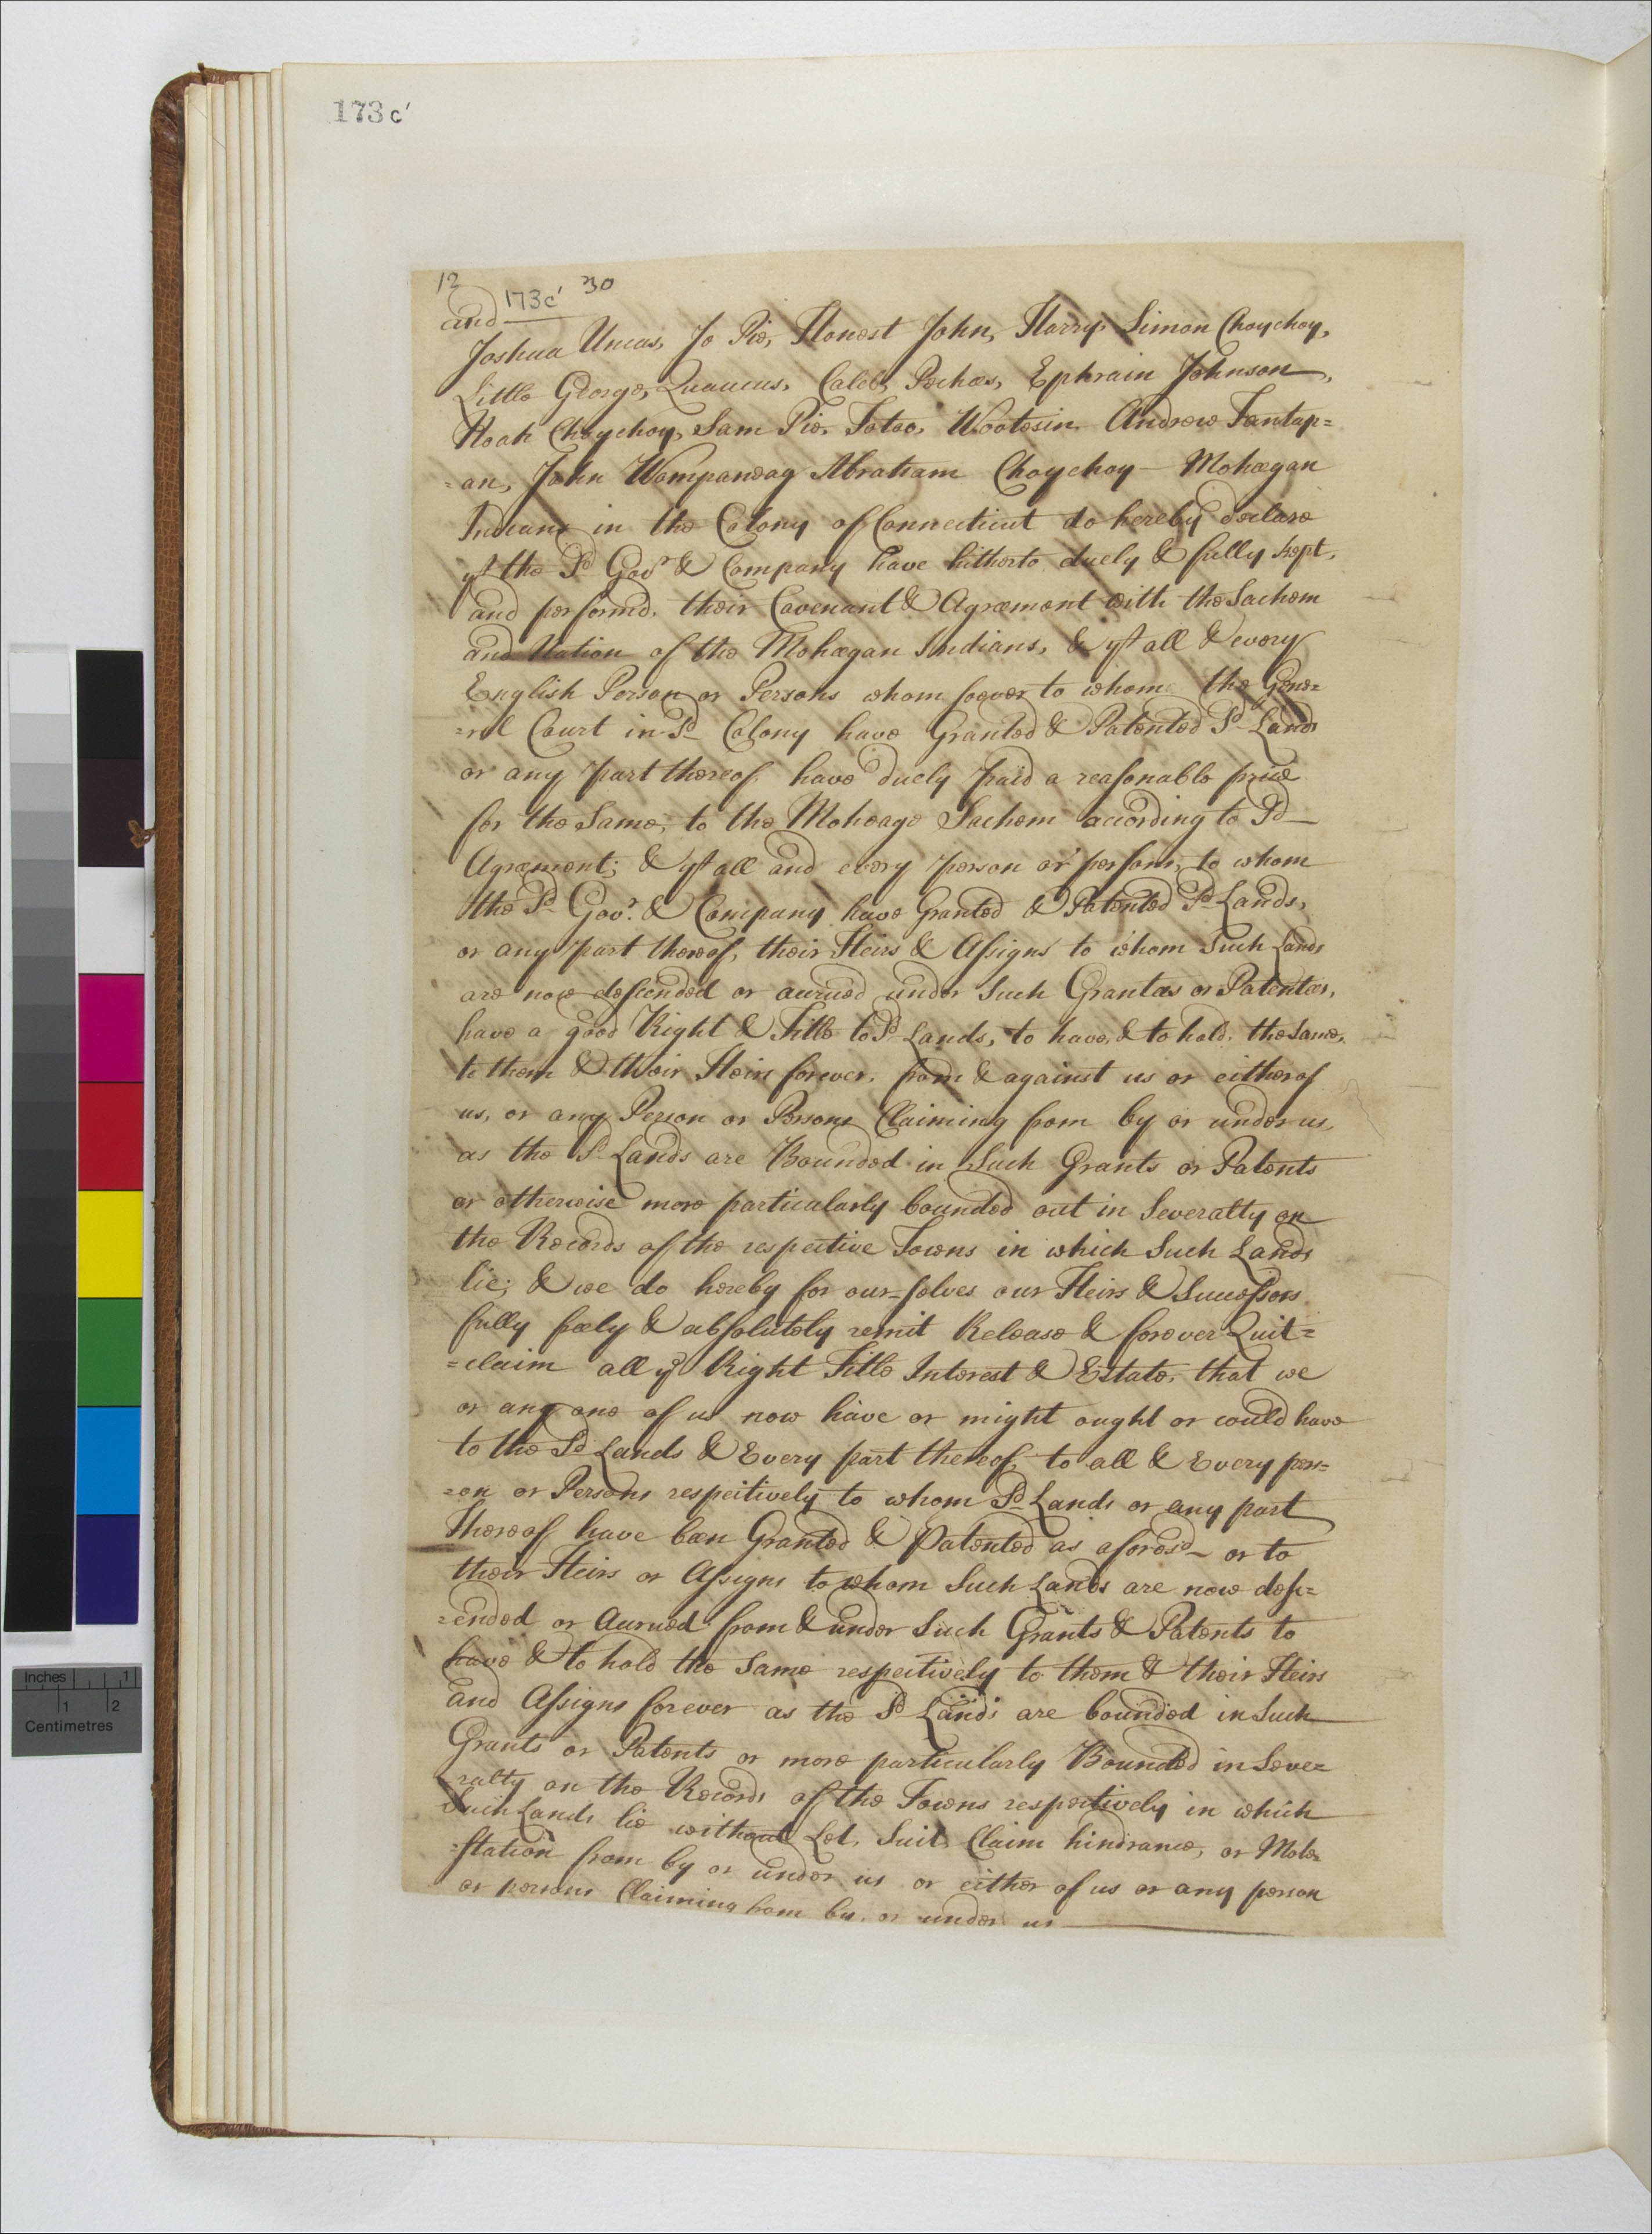 173 c'
12
173c' 30
and
Joshua Uncas, Jo Pie, Honest John, Harry, Simon Choychoy,
Little George, Quaucus, Caleb, Pechas, Ephraim Johnson,
Noah Choychoy, Sam Pie, Totao, Wootosin. Andrew Tantap=
=an, John Wompaneag Abraham Choychoy - Mohegan
Indians in the Colony of Connecticut do hereby declare
yt the Sd Govr & Company have hitherto duely & fully kept,
and performd, their Covenant & Agreement with the Sachem
and Nation of the Mohegan Indians, & yt all & every
English Person or Persons whomsoever to whom the Gene=
=ral Court in Sd Colony have Granted & Patented Sd Lands
or any part thereof have duely paid a reasonable price
for the Same, to the Moheage Sachem according to Sd
Agreement; & yt all and every person or persons, to whom
the Sd Govr. & Company have Granted & Patented Sd Lands,
or any part thereof, their Heirs & Assigns to whom Such Lands
are now descended or accrued under Such Grantees or Patentees,
have a good Right & Title to Sd Lands, to have & to hold, the Same,
to them & their Heirs forever, from & against us or either of
us, or any Person or Persons Claiming from by or under us,
as the Sd Lands are Bounded in Such Grants or Patents
or otherwise more particularly bounded out in Severalty on
the Records of the respective Towns in which Such Lands
lie; & we do hereby for our-selves our Heirs & Successors
fully freely & absolutely remit Release & forever Quit=
=claim all ye Right Title Interest & Estate, that we
or any one of us now have or might ought or could have
to the Sd Lands & Every part thereof, to all & Every pers=
=on or Persons respectively to whom Sd Lands or any part
Thereof have been Granted & Patented as aforesd - or to
their Heirs or Assigns to whom Such Lands are now desc=
=ended or Accrued from & under Such Grants & Patents to
have & to hold the Same respectively to them & their Heirs
and Assigns forever as the Sd Lands are bounded in Such
Grants or Patents or more particularly Bounded in Seve=
ralty on the Records of the Towns respectively in which
Such Lands lie without Let, Suit, Claim hindrance, or Mole=
=station from by or under us or either of us or any person
or persons Claiming from by, or under us
Inches 1
1 2
Centimetres